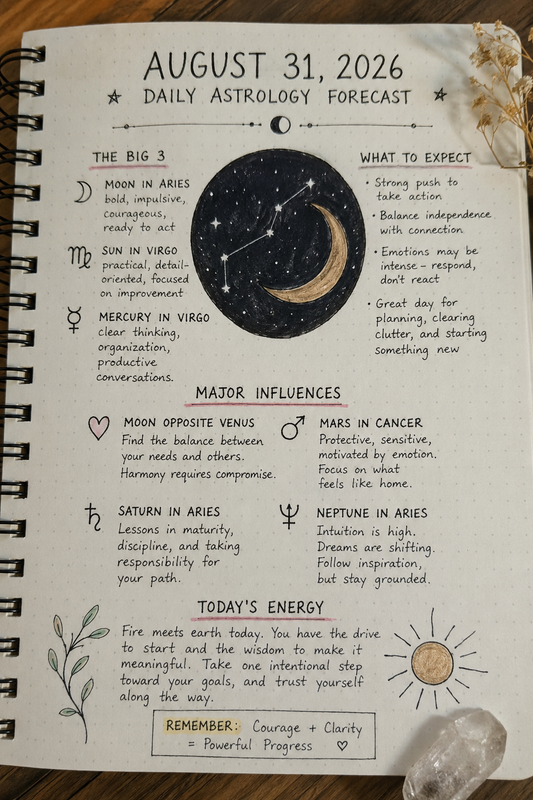 AUGUST 31, 2026
DAILY ASTROLOGY FORECAST
THE BIG 3
MOON IN ARIES
bold, impulsive,
courageous,
ready to act
SUN IN VIRGO
practical, detail-
oriented, focused
on improvement
MERCURY IN VIRGO
clear thinking,
organization,
productive
conversations.
WHAT TO EXPECT
• Strong push to
take action
• Balance independence
with connection
• Emotions may be
intense – respond,
don't react
• Great day for
planning, clearing
clutter, and starting
something new
MAJOR INFLUENCES
MOON OPPOSITE VENUS
Find the balance between
your needs and others.
Harmony requires compromise.
MARS IN CANCER
Protective, sensitive,
motivated by emotion.
Focus on what
feels like home.
SATURN IN ARIES
Lessons in maturity,
discipline, and taking
responsibility for
your path.
NEPTUNE IN ARIES
Intuition is high.
Dreams are shifting.
Follow inspiration,
but stay grounded.
TODAY'S ENERGY
Fire meets earth today. You have the drive
to start and the wisdom to make it
meaningful. Take one intentional step
toward your goals, and trust yourself
along the way.
REMEMBER: Courage + Clarity
= Powerful Progress ♡